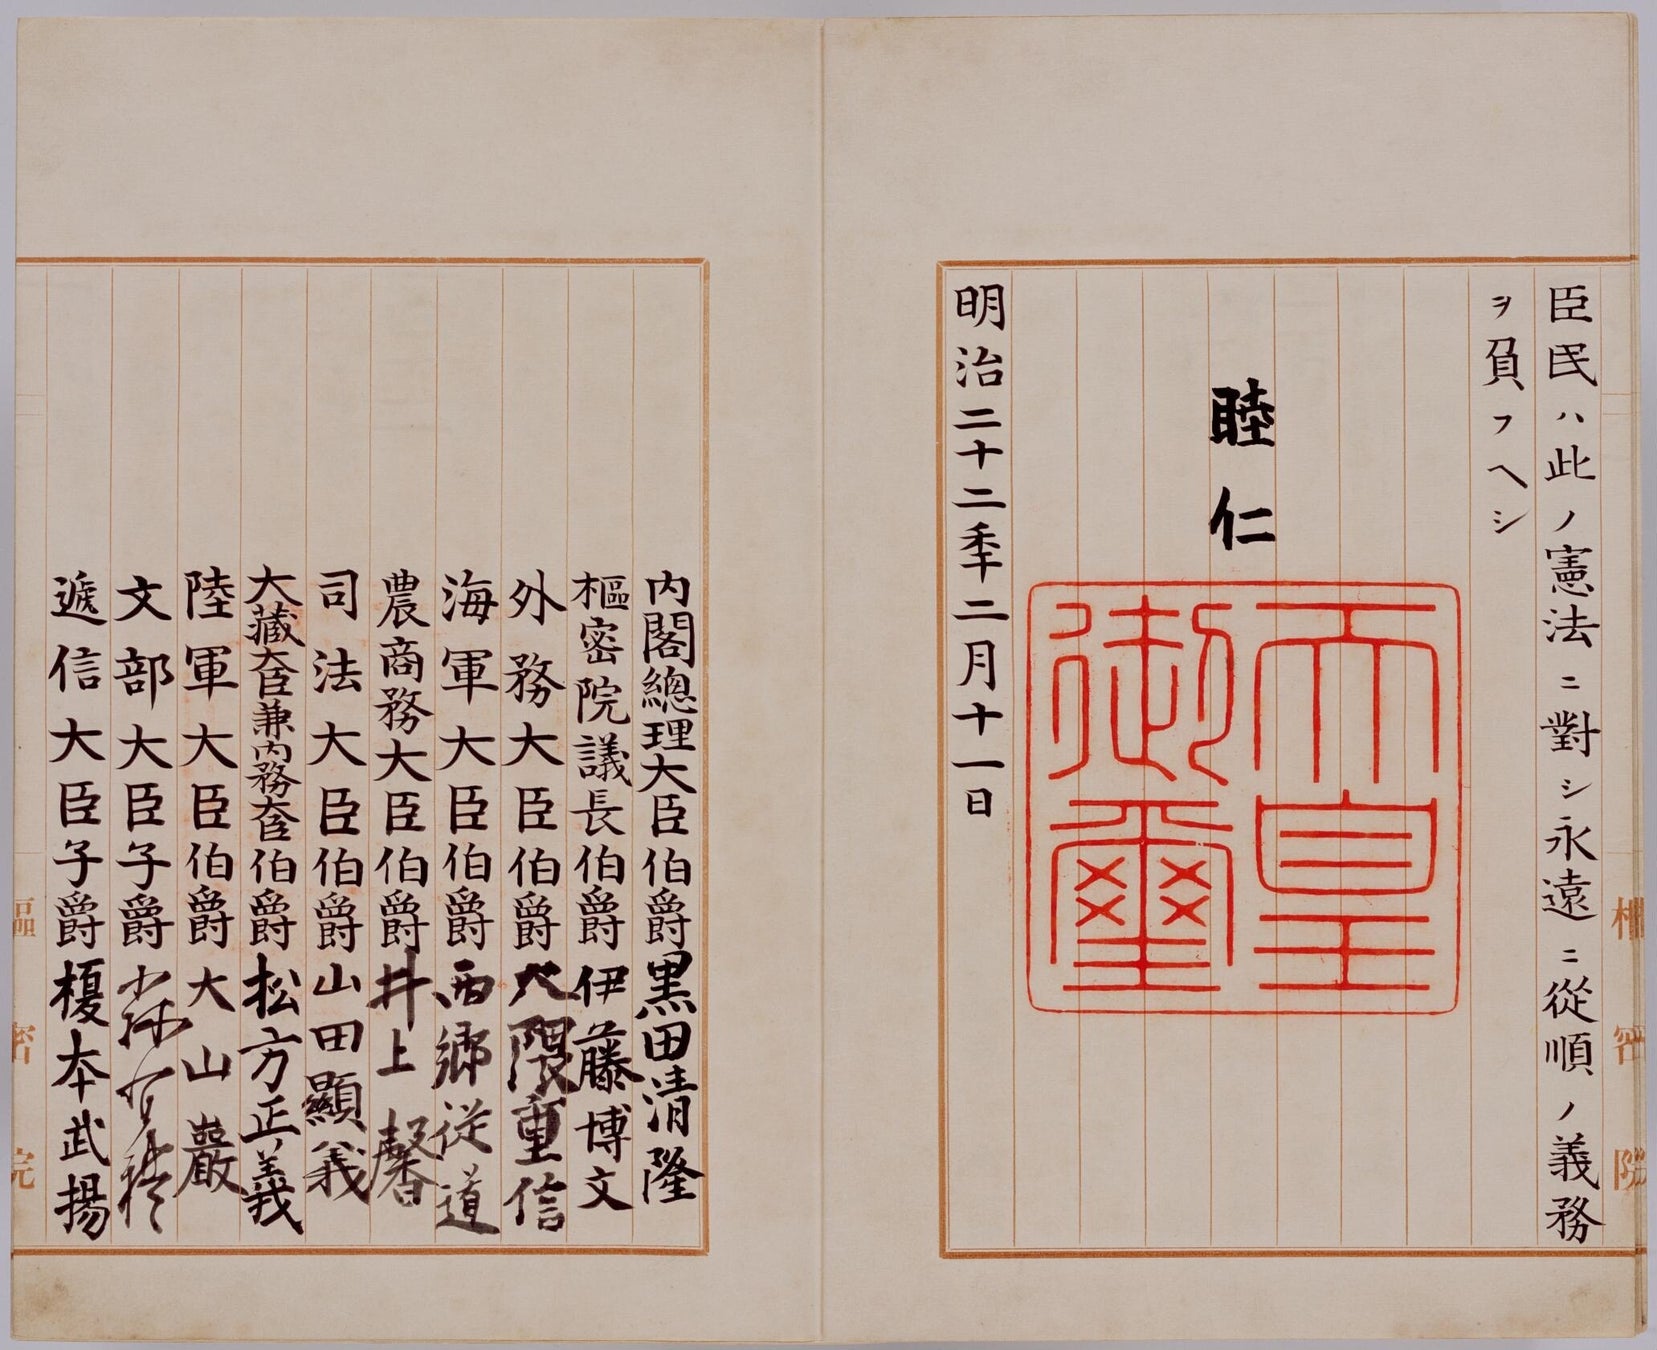 臣民ハ此ノ憲法ニ對シ永遠ニ從順ノ義務
ヲ負フヘシ
睦仁
天皇
御璽
明治二十二年二月十一日
內閣總理大臣伯爵黒田清隆
樞密院議長伯爵伊藤博文
外務大臣伯爵大隈重信
海軍大臣伯爵西郷従道
農商務大臣伯爵井上馨
司法大臣伯爵山田顯義
大藏大臣兼內務大臣伯爵松方正義
陸軍大臣伯爵大山巖
文部大臣子爵森有禮
遞信大臣子爵榎本武揚
樞密院